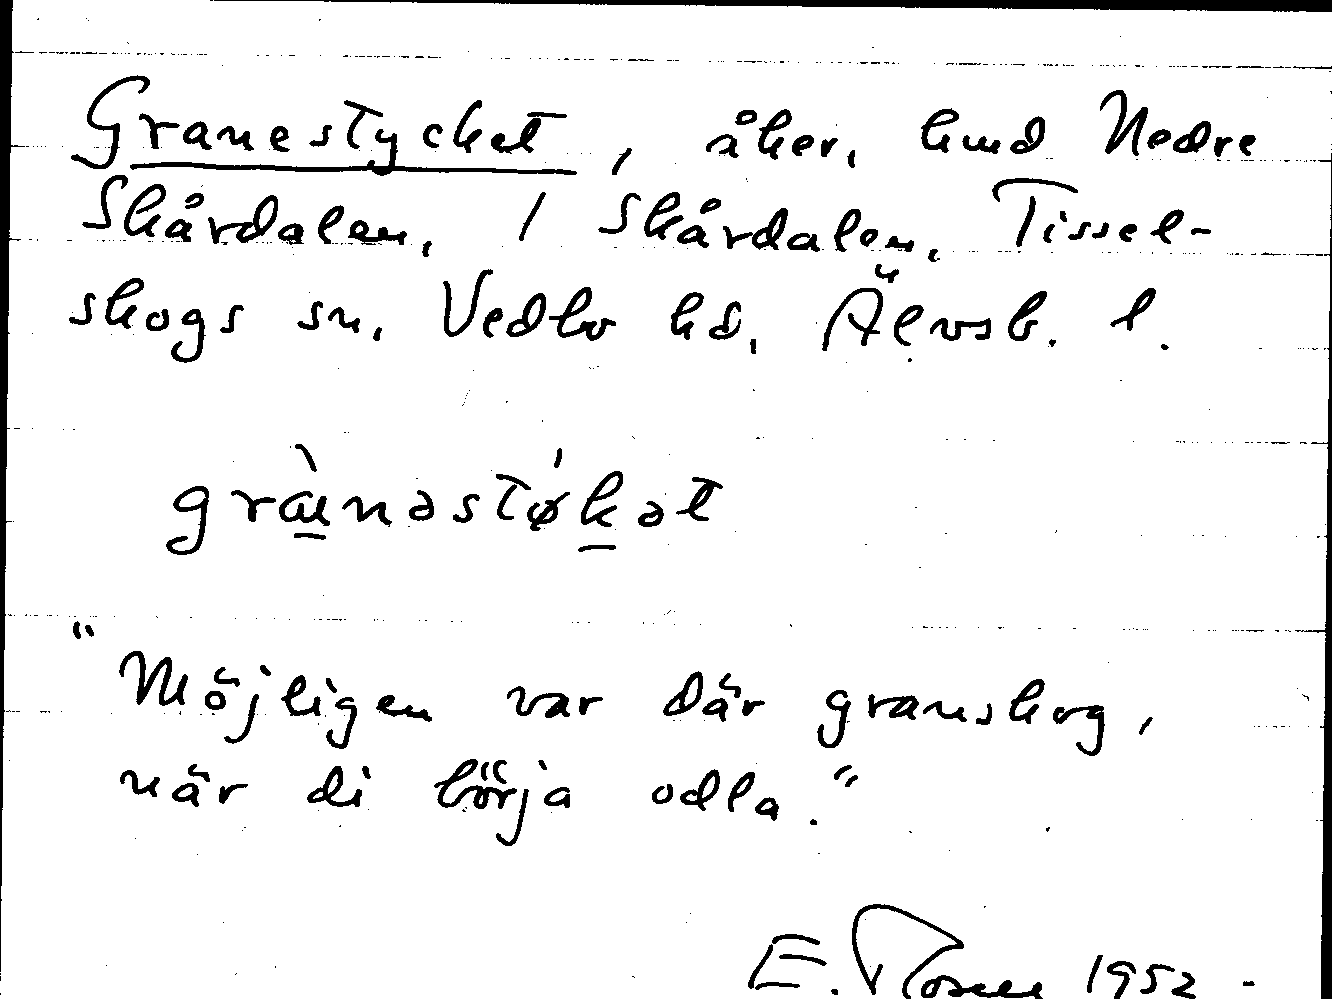 Granestycket, åker, hmd Nedre
Skårdalen, 1 Skårdalen, Tissel-
skogs sn, Vedbo hd, Älvsb. l.
grànəstǿkət
"Möjligen var där granskog,
när di börja odla."
E. 1952